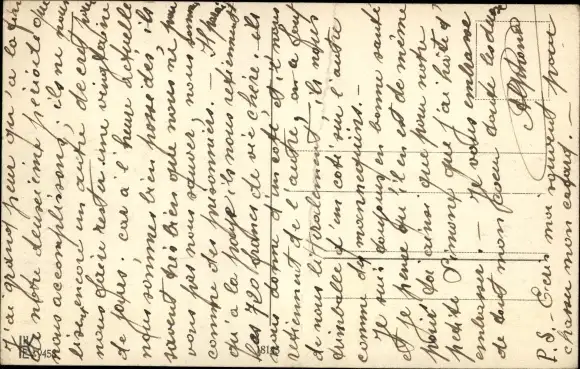 J'ai grand peur qu'à la fin
de notre deuxième période que
nous accomplissons, ils ne nous
lisent encore un autre décret pour
nous faire rester une vingtaine
de jours. car à l'heure actuelle
nous sommes bien possédés, ils
savent très bien que nous ne pou
vons pas nous sauver, nous sommes
comme des prisonniers. - Il parait
qu'à la paye ils nous retiennent
les 720 francs de vie chère; ils
nous donne d'un côté, et il nous
retiennent de l'autre, on a font
de nous littéralement, ils nous
d'un côté vice l'autre
comme des mannequins. -
Je suis toujours en bonne santé
et je pense qu'il en est de même
pour toi ainsi que pour notre
petite Simone que j'ai hâte d'
embrasser. - Je vous embrasse
de tout mon coeur toutes les deux
Alphonse
P.S. - Ecris moi souvent pour
chasser mon cafard. -